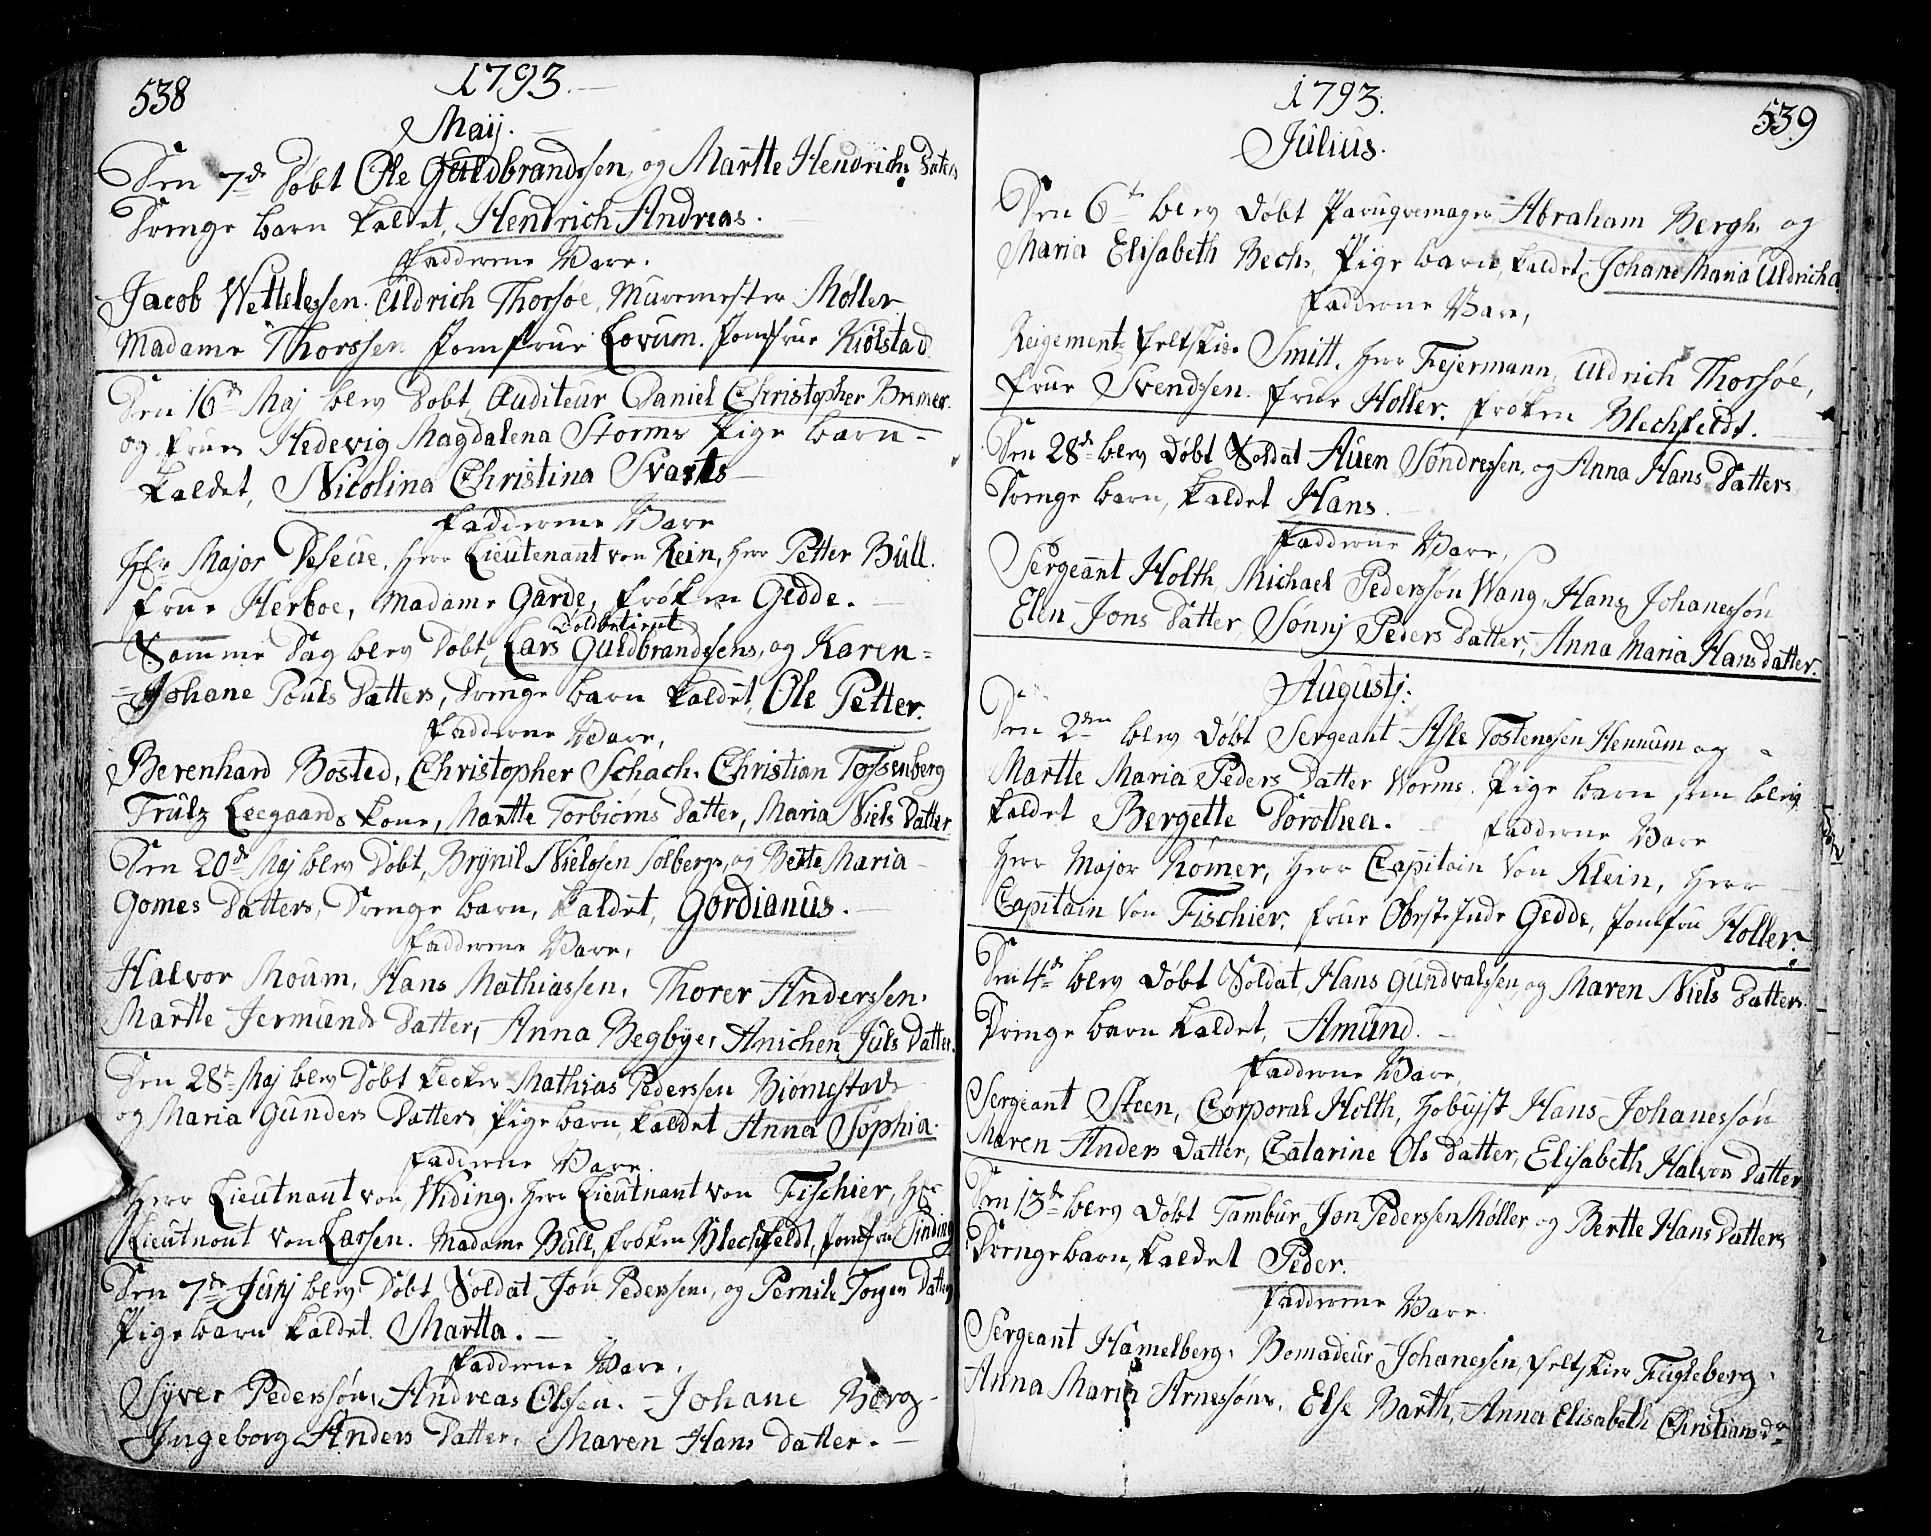 538
1793.
Maij.
Den 7de Døbt Ole Guldbrandssen, og Martte Hendrichs Daters
Drenge barn kaldet, Hendrich Andreas.
Fadderne Vare.
Jacob Wettelessen. Uldrich Thorsøe, Muremester Møller
Madame Thorssen Jomfrue Lovum. Jomfrue Kiølstad
Den 16de Maj blev Døbt, Auditeur Daniel Christopher Bremer.
og Frues Hedevig Magdalena Storms Pige barn
kaldet, Nicolina Christina Svarts
Fadderne Vare
Hr Major Deseue. Herr Lieutenant von Rein, Herr Petter Bull.
Frue Herboe, Madame Garde, Frøken Gedde.
Toldbetient
Samme Dag blev Døbt, Lars Guldbrandssens, og Karen =
Johane Pouls Datters, Drenge barn kaldet, Ole Petter.
Fadderne Vare,
Berenhard Bosted, Christopher Schach. Christian Tossenberg
Trulz Leegaards kone, Martte Torbiørns Datter, Maria Niels Datter
Den 20de Maj blev Døbt, Brynil Nielssen Solbergs, og Bertte Maria
Gomes Datters, Drenge barn, kaldet, Gordianus.
Fadderne Vare,
Halvor Moum, Hans Mathiassen, Thorer Anderssen,
Martte Jermunds Datter, Anna Begbye, Anichen Juls Datter.
Den 28de Maj blev Døbt Mathias Pederssen Biørnestad
og Maria Gunders Datters, Pige barn, kaldet Anna Sophia.
Fadderne Vare.
Herr Lieutnant von Widing. Herr Lieutnant von Fischier, Hr
Lieutnant von Larssen. Madame Bull, Frøken Blechfeldt, Jomfru Sinding
Den 7de Junj blev Døbt, Soldat Jon Pederssens, og Pernile Torgers Datters
Pige barn kaldet. Martta.
Fadderne Vare,
Syver Pederssøn, Andreas Olssen. Johane Berg
Ingeborg Anders Datter, Maren Hans Datter.
1793.
539
Julius.
Den 6te blev Døbt Paruqvemager Abraham Bergh, og
Maria Elisabeth Bechs, Pige barn, kaldet, Johane Maria Uldricha
Fadderne Vare,
Reigements Feltskier Smitt, Herr Fejermann, Uldrich Thorsøe,
Frue Svendssen. Frue Holler. Frøken Blechfeldt.
Den 28de blev Døbt Soldat Auen Søndressen, og Anna Hans Datters
Drenge barn, kaldet Hans.
Fadderne Vare,
Sergeant Holth, Michael Pederssøn Wang, Hans Johanessøn
Elen Jons Datter, Sønnj Peders Datter, Anna Maria Hans datter.
Augustj:
Den 2den blev Døbt Sergeant Asle Tostenssen Hennum og
Martte Maria Peders Datter Worms. Pige barn som blev
kaldet Bergette Dorothea. Fadderne Vare
Herr Major Rømer, Herr Capitain Von Klein, Herr
Capitain Von Fischier. Frue Obrstinde Gedde, Jomfru Holler.
Den 4de blev Døbt Soldat, Hans Gundvalssen, og Maren Niels Datters
Drenge barn kaldet, Amund.
Fadderne Vare,
Sergeant Steen, Corporal Holth, Hobujst Hans Johanessøn
Maren Anders Datter, Catarine Ols datter, Elisabeth Halvors Datter
Den 13de blev Døbt Tambur Jon Pederssen Møller og Bertte Hans Datters
Drenge barn, kaldet Peder.
Fadderne Vare.
Sergeant Hamelberg, Bomadeur Johanessen, Feltskier Fugleberg,
Anna Maria Arnessøns, Else Barth, Anna Elisabeth Christians dr